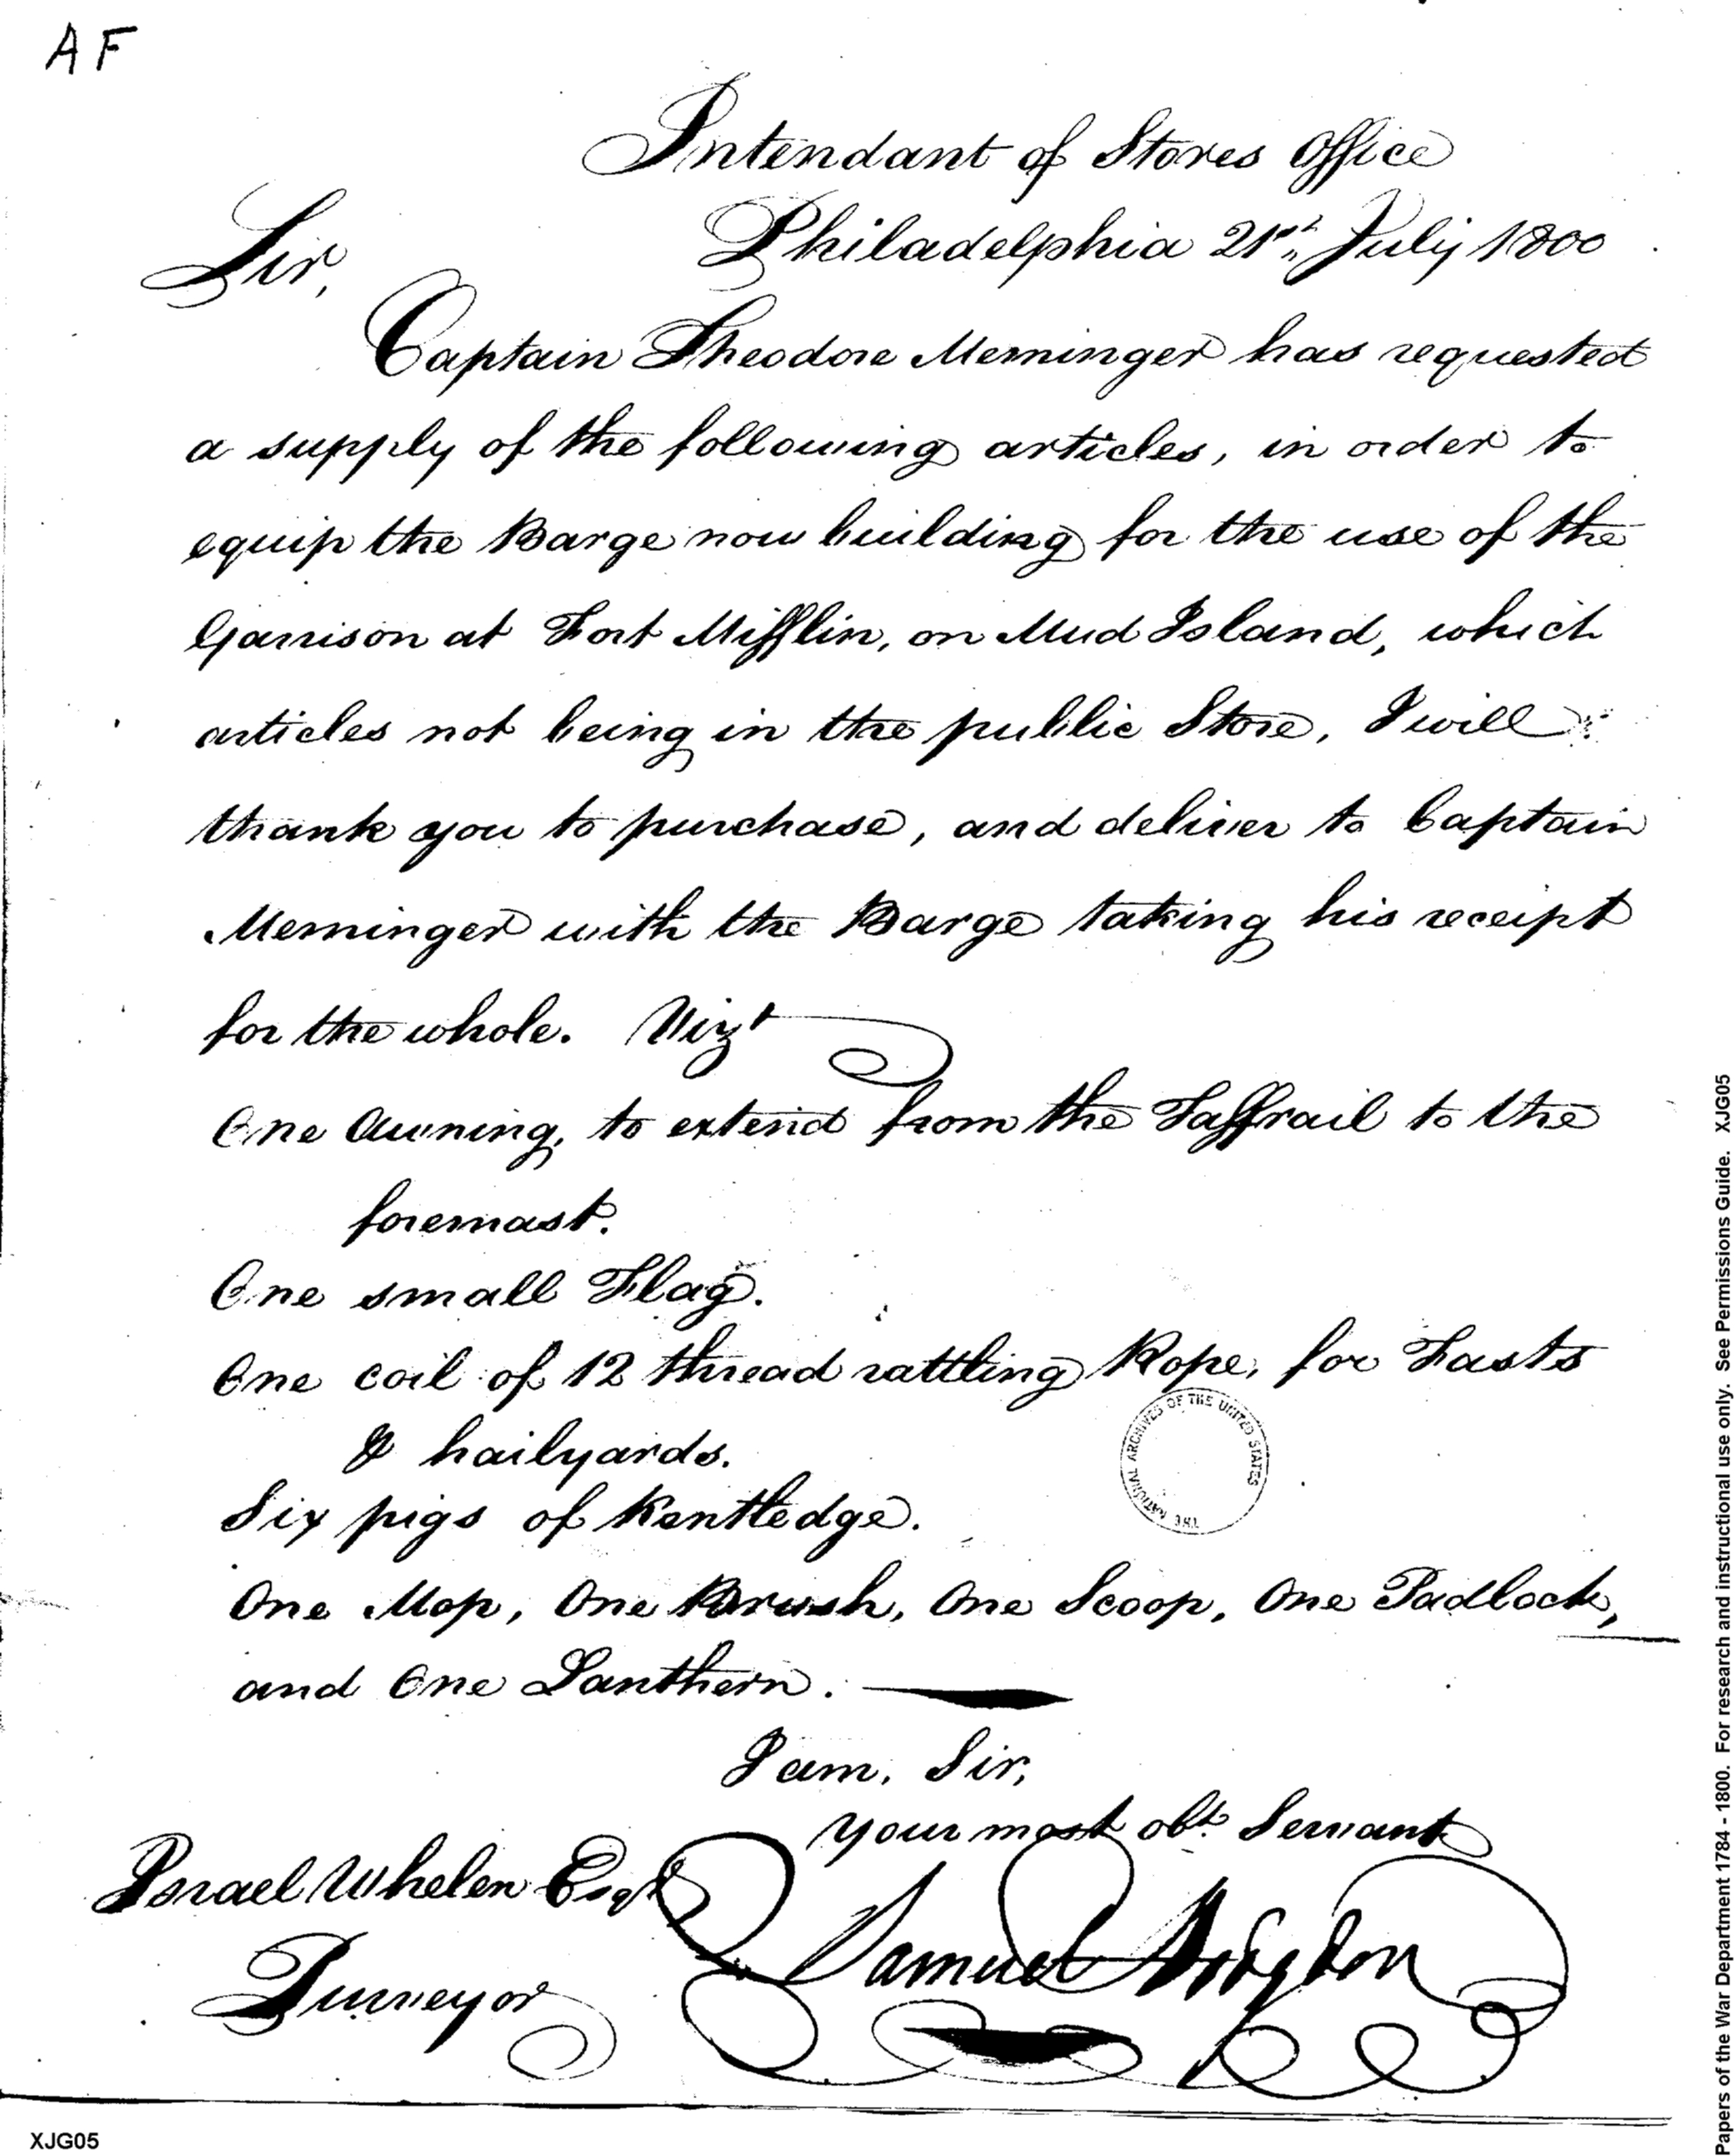 A F
Intendant of Stores Office
Philadelphia 21st July 1800
Sir,
Captain Theodore Meminger has requested
a supply of the following articles, in order to
equip the Barge now building for the use of the
Garrison at Fort Mifflin, on Mud Island, which
articles not being in the public Store, I will
thank you to purchase, and deliver to Captain
Meminger with the Barge taking his receipt
for the whole. Vizt
One Awning, to extend from the Taffrail to the
foremast.
One small Flag.
One coil of 12 thread rattling Rope, for Fasts
& hailyards.
Six pigs of Kentledge.
One Mop, One Brush, One Scoop, One Padlock,
and One Lanthern.
I am, Sir,
Your most obt. Servant
Israel Whelen Esqr
Purveyor
Samuel Hodgdon
THE NATIONAL ARCHIVES OF THE UNITED STATES
Papers of the War Department 1784 - 1800. For research and instructional use only. See Permissions Guide. XJG05
XJG05